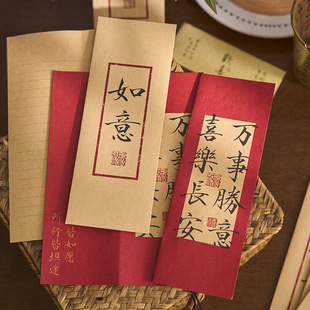 如意
万事勝意
喜樂長安
万事勝
皆如愿
所行皆坦途